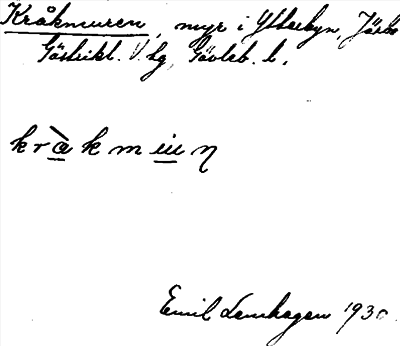 Kråkmuren, myr i Ytterbyn, Järbo
Gästrikl. V. hg, Gävleb. l.
kràkmuuŋ
Emil Lenhagen 1930